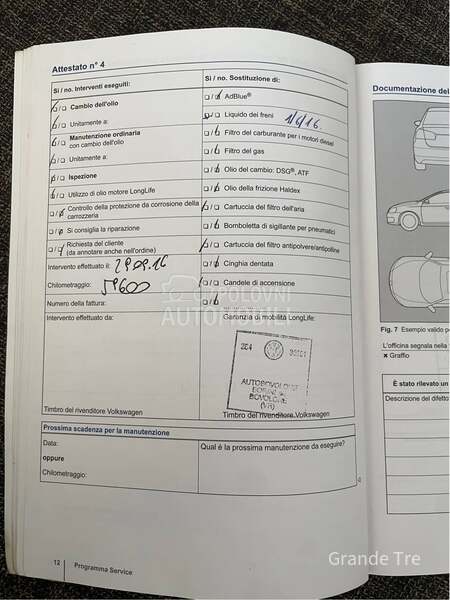 Attestato n° 4
Si / no. Interventi eseguiti:
Cambio dell'olio
Unitamente a:
Manutenzione ordinaria
con cambio dell'olio
Unitamente a:
Ispezione
Utilizzo di olio motore LongLife
Controllo della protezione da corrosione della
carrozzeria
Si consiglia la riparazione
Richiesta del cliente
(da annotare anche nell'ordine)
Intervento effettuato il: 29.09.16
Chilometraggio: 59600
Numero della fattura:
Intervento effettuato da:
Timbro del rivenditore Volkswagen
Si / no. Sostituzione di:
AdBlue®
Liquido dei freni
Filtro del carburante per i motori diesel
Filtro del gas
Olio del cambio: DSG®, ATF
Olio della frizione Haldex
Cartuccia del filtro dell'aria
Bomboletta di sigillante per pneumatici
Cartuccia del filtro antipolvere/antipolline
Cinghia dentata
Candele di accensione
Garanzia di mobilità LongLife:
AUTOBOVOLO
BOVOLONE
(VR)
Timbro del rivenditore Volkswagen
Prossima scadenza per la manutenzione
Data:
oppure
Chilometraggio:
Qual è la prossima manutenzione da eseguire?
12
Programma Service
Documentazione del
Fig. 7 Esempio valido pe
L'officina segnala nella
✖ Graffio
È stato rilevato un
Descrizione del difetto
POLOVNI
AUTOMOBILI
Grande Tre